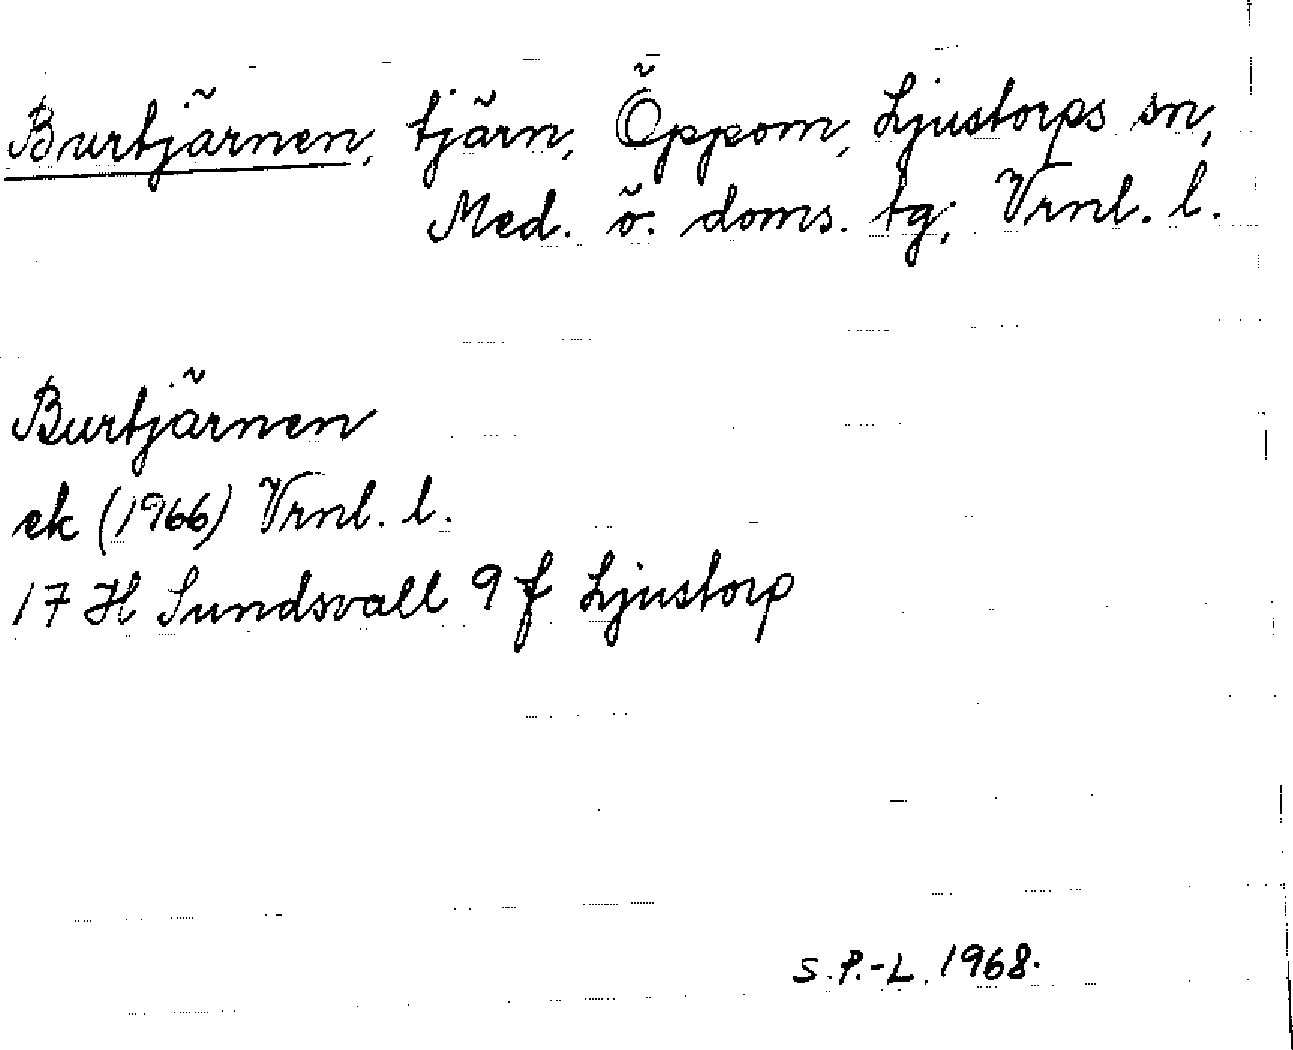 Burtjärnen, tjärn, Öppom, Ljustorps sn,
Med. ö. doms. tg, Vrnl. l.
Burtjärnen
ek (1966) Vrnl. l.
17 H Sundsvall 9 f Ljustorp
S. P.-L. 1968.